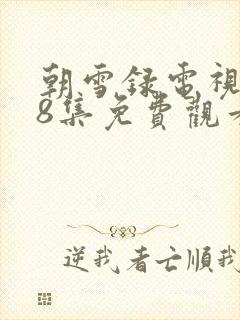 朝雪録電視
8集免費觀看
逆我者亡順我